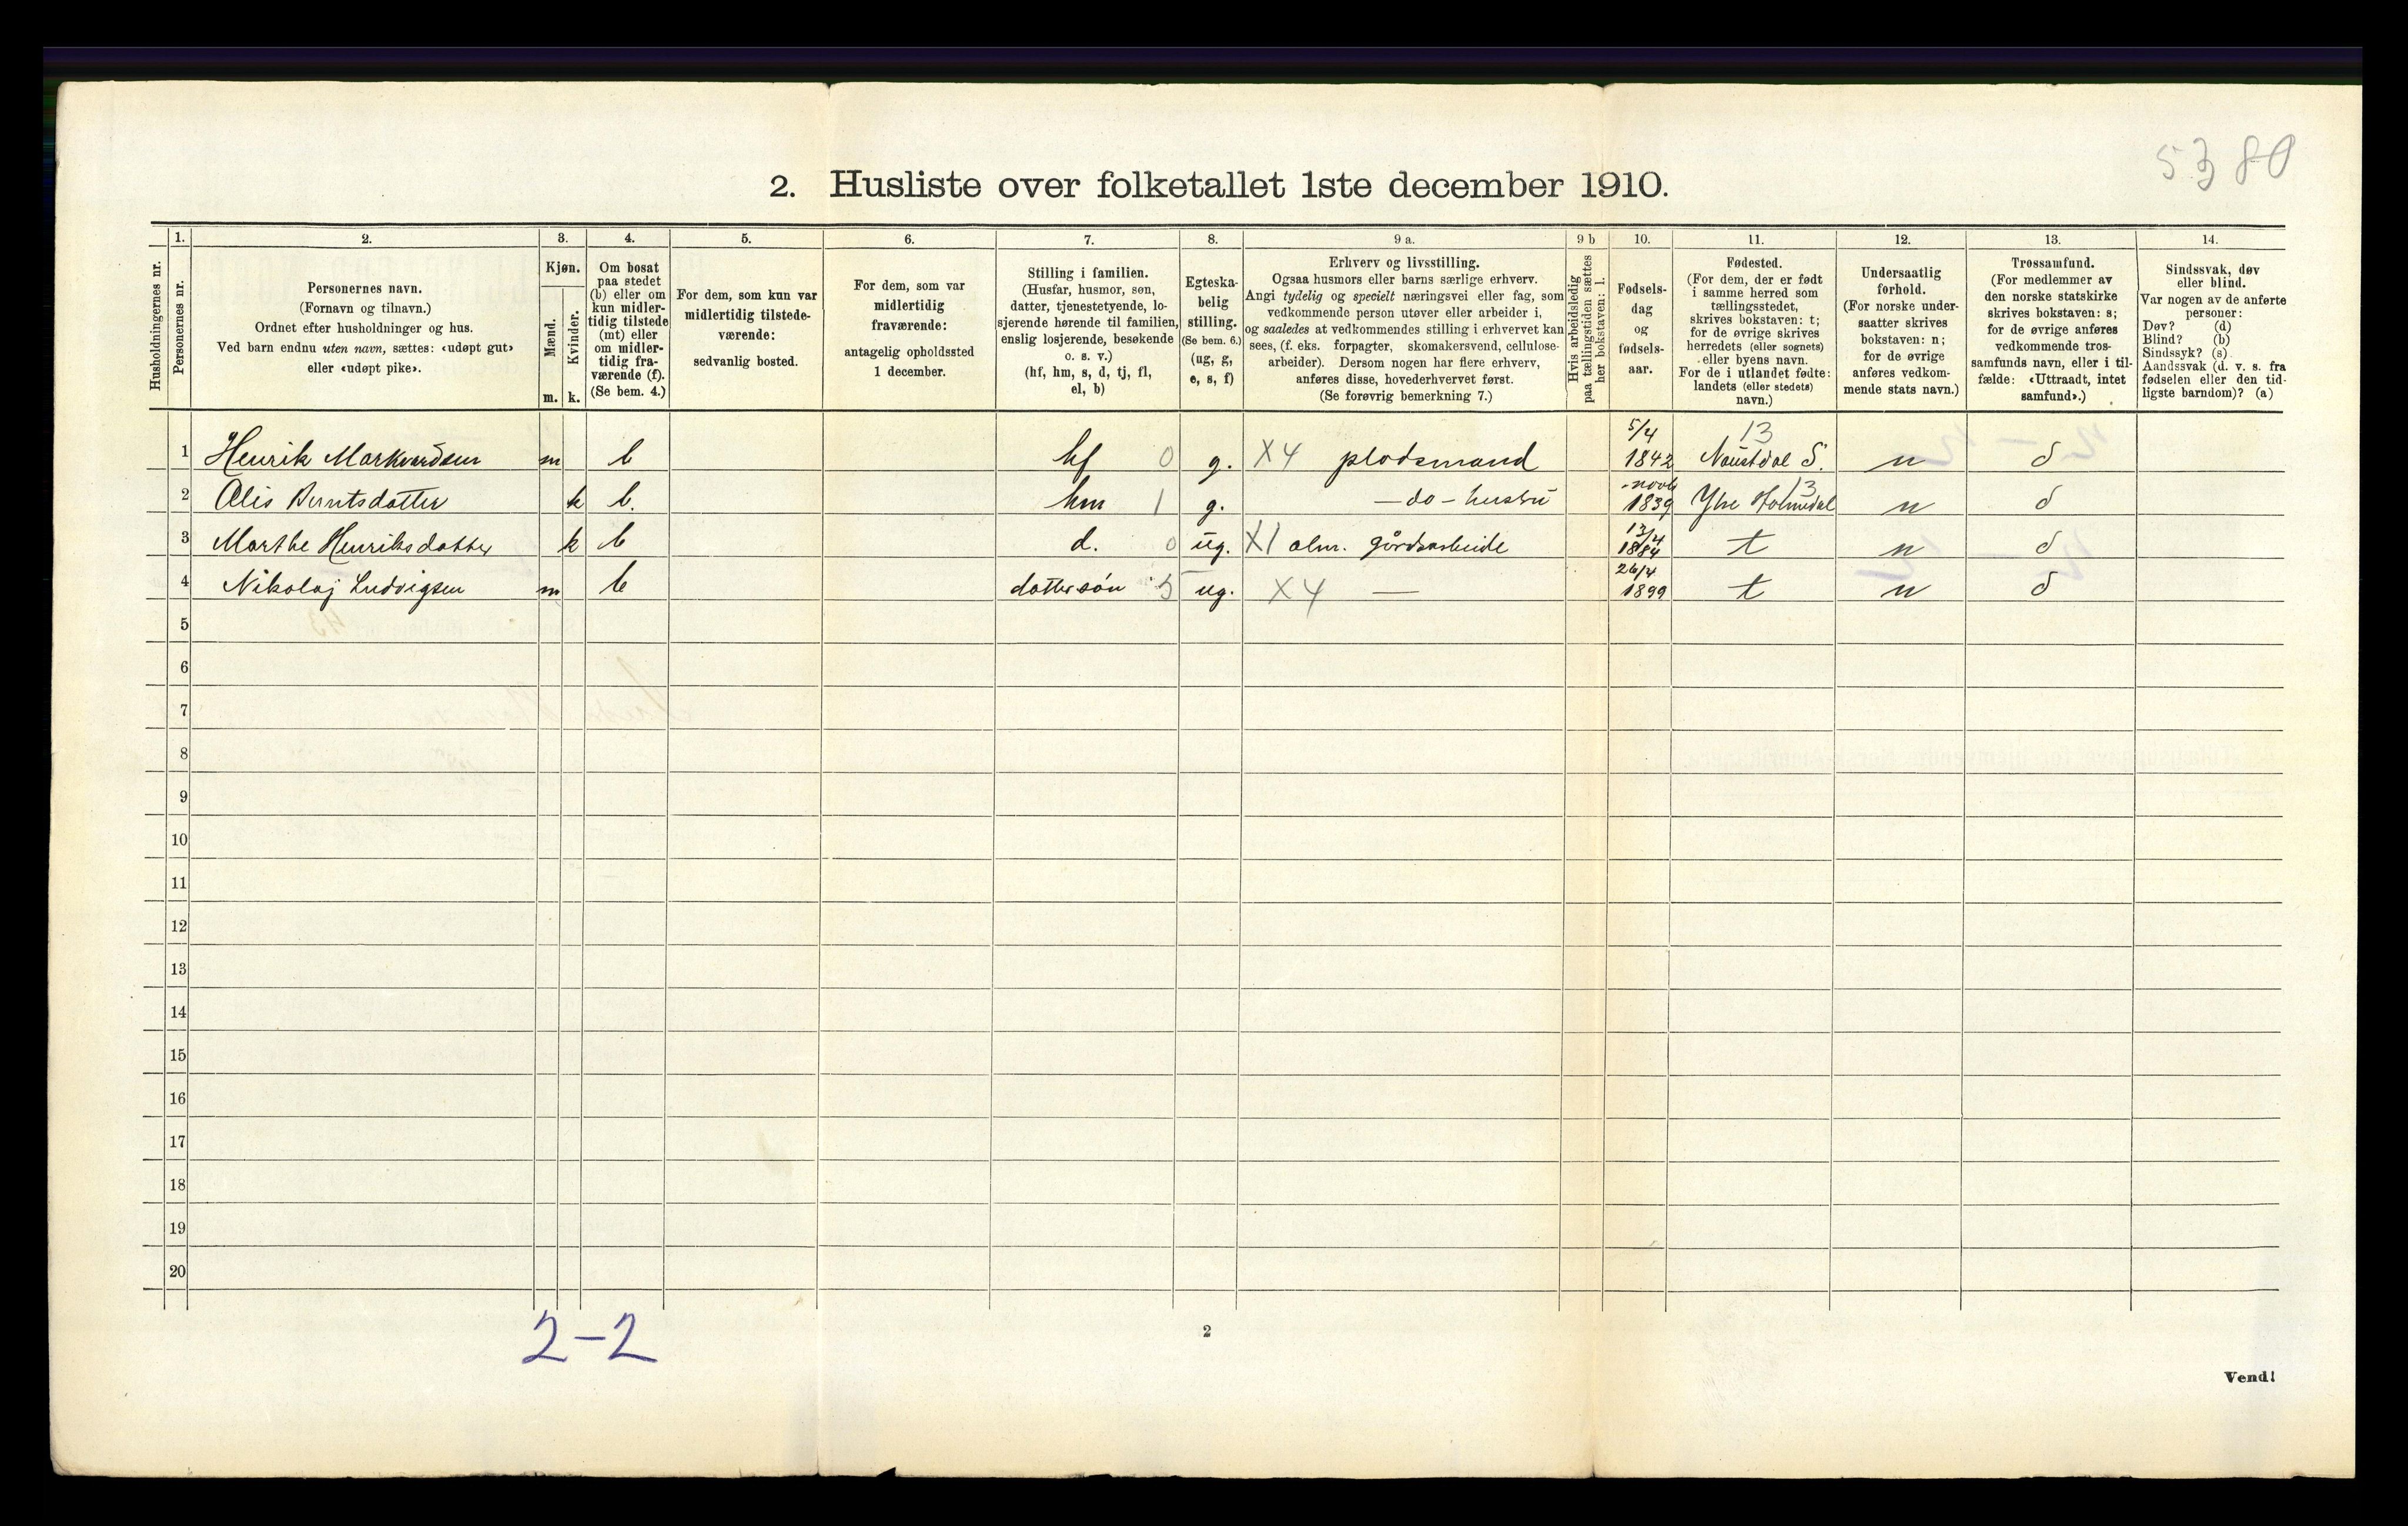 5380
2. Husliste over folketallet 1ste december 1910.
Husholdningernes nr.
1.
Personernes nr.
2.
Personernes navn.
(Fornavn og tilnavn.)
Ordnet efter husholdninger og hus.
Ved barn endnu uten navn, sættes: «udøpt gut»
eller «udøpt pike».
3.
Kjøn.
Mænd.
Kvinder.
m. k.
4.
Om bosat
paa stedet
(b) eller om
kun midler-
tidig tilstede
(mt) eller
om midler-
tidig fra-
værende (f).
(Se bem. 4.)
5.
For dem, som kun var
midlertidig tilstede-
værende:
sedvanlig bosted.
6.
For dem, som var
midlertidig
fraværende:
antagelig opholdssted
1 december.
7.
Stilling i familien.
(Husfar, husmor, søn,
datter, tjenestetyende, lo-
sjerende hørende til familien,
enslig losjerende, besøkende
o. s. v.)
(hf, hm, s, d, tj, fl,
el, b)
8.
Egteska-
belig
stilling.
(Se bem. 6.)
(ug, g,
e, s, f)
9 a.
Erhverv og livsstilling.
Ogsaa husmors eller barns særlige erhverv.
Angi tydelig og specielt næringsvei eller fag, som
vedkommende person utøver eller arbeider i,
og saaledes at vedkommendes stilling i erhvervet kan
sees, (f. eks. forpagter, skomakersvend, cellulose-
arbeider). Dersom nogen har flere erhverv,
anføres disse, hovederhvervet først.
(Se forøvrig bemerkning 7.)
9 b
Hvis arbeidsledig
paa tællingstiden sættes
her bokstaven: l.
10.
Fødsels-
dag
og
fødsels-
aar.
11.
Fødested.
(For dem, der er født
i samme herred som
tællingsstedet,
skrives bokstaven: t;
for de øvrige skrives
herredets (eller sognets)
eller byens navn.
For de i utlandet fødte:
landets (eller stedets)
navn.)
12.
Undersaatlig
forhold.
(For norske under-
saatter skrives
bokstaven: n;
for de øvrige
anføres vedkom-
mende stats navn.)
13.
Trossamfund.
(For medlemmer av
den norske statskirke
skrives bokstaven: s;
for de øvrige anføres
vedkommende tros-
samfunds navn, eller i til-
fælde: «Uttraadt, intet
samfund».)
14.
Sindssvak, døv
eller blind.
Var nogen av de anførte
personer:
Døv? (d)
Blind? (b)
Sindssyk? (s)
Aandssvak (d. v. s. fra
fødselen eller den tid-
ligste barndom)? (a)
1 Henrik Markvardsen m b hf 0 g. X4 plodsmand 5/4 1842 13 Naustdal S. n s
2 Alis Berntsdatter k b. hm 1 g. — do — hustru novb 1839 13 Yhe Holmedal n s
3 Marthe Henriksdatter k b d. 0 ug. X1 alm. gårdsarbeide 13/4 1884 t n s
4 Nikolaj Ludvigsen m b dattersøn 5 ug. X4 — 26/4 1899 t n s
5
6
7
8
9
10
11
12
13
14
15
16
17
18
19
20
2-2
2
Vend!